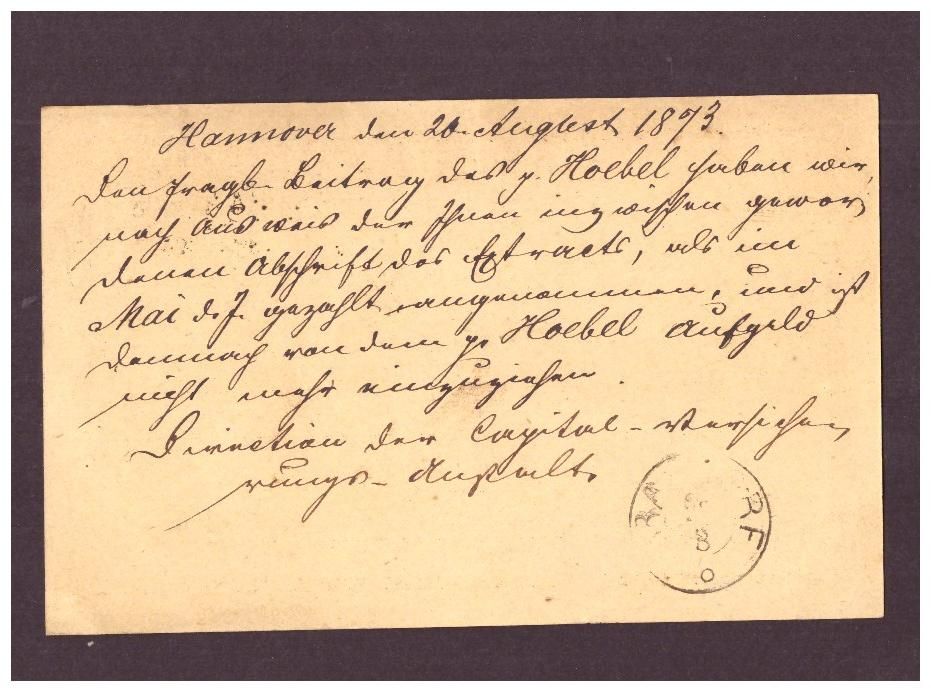 Hannover den 20. August 1873.
Den fragl. Beitrag des p. Hoebel haben wir,
nach Ausweis der Ihnen inzwischen gewor-
denen Abschrift des Extracts, als im
Mai d. J. gezahlt angenommen, und ist
demnach von dem p. Hoebel Aufgeld
nicht mehr einzuziehen.
Direction der Capital-Versiche-
rungs-Anstalt.
RF
8